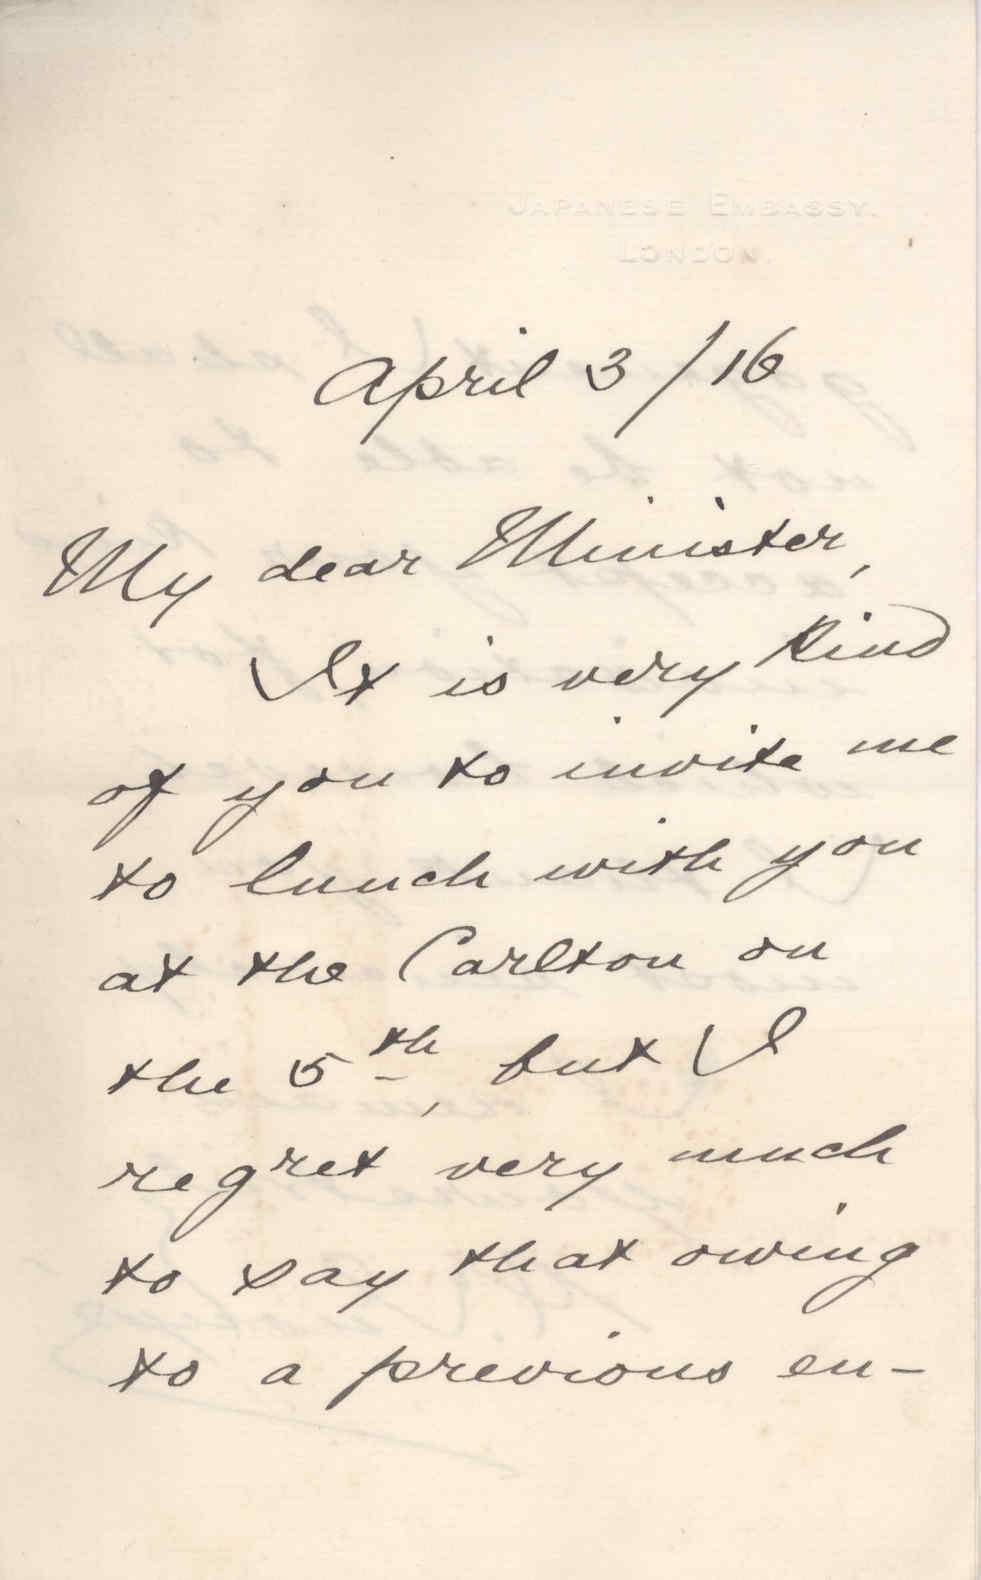 JAPANESE EMBASSY.
LONDON.
April 3/16
My dear Minister,
It is very kind
of you to invite me
to lunch with you
at the Carlton on
the 5th, but I
regret very much
to say that owing
to a previous en-